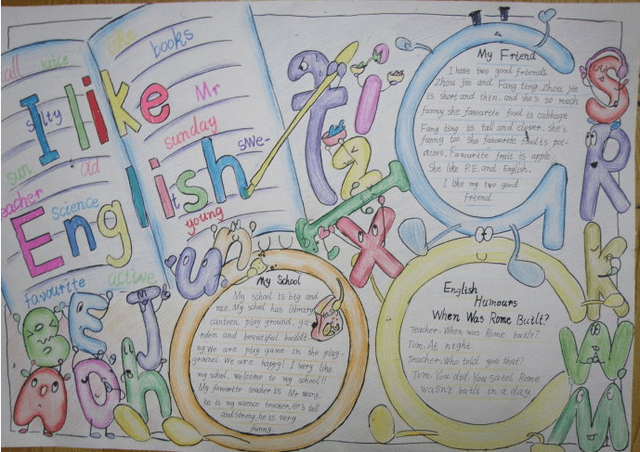 all nice like books
I like
salty Mr
sunday
sun ad swe-
teacher
English
science t
young
favourite active
My Friend
I have two good friends
Zhou jie and Fang ting Zhou jie
is short and thin. and she's so much
funny she favourite food is cabbage
Fang ting is tall and clever. she's
funny too. She favourite food is pot-
atoes, Favourite fruit is apple
She like P.E. and English.
I like my two good
friend.
My School
My school is big and
nice. My school has library
canteen play ground, ga-
rden and beautiful buildi
ng We are play game in the play-
ground We are happy! I very like
my school, welcome to my school!!
My favourite teacher is Mr Wang,
he is my science teacher. He's tall
and strong, he is very
funny.
English
Humours
When Was Rome Built?
Teacher: When was Rome built?
Tom: At night
Teacher: Who told you that?
Tom: You did. You said Rome
wasn't built in a day
T
i
Z
X
G
S
R
k
W
M
B E J
A O h